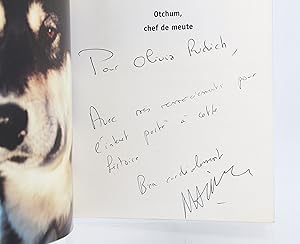 Otchum,
chef de meute
Pour Olivia
Avec mes remerciements pour
l'intérêt porté à cette
histoire
Bien cordialement